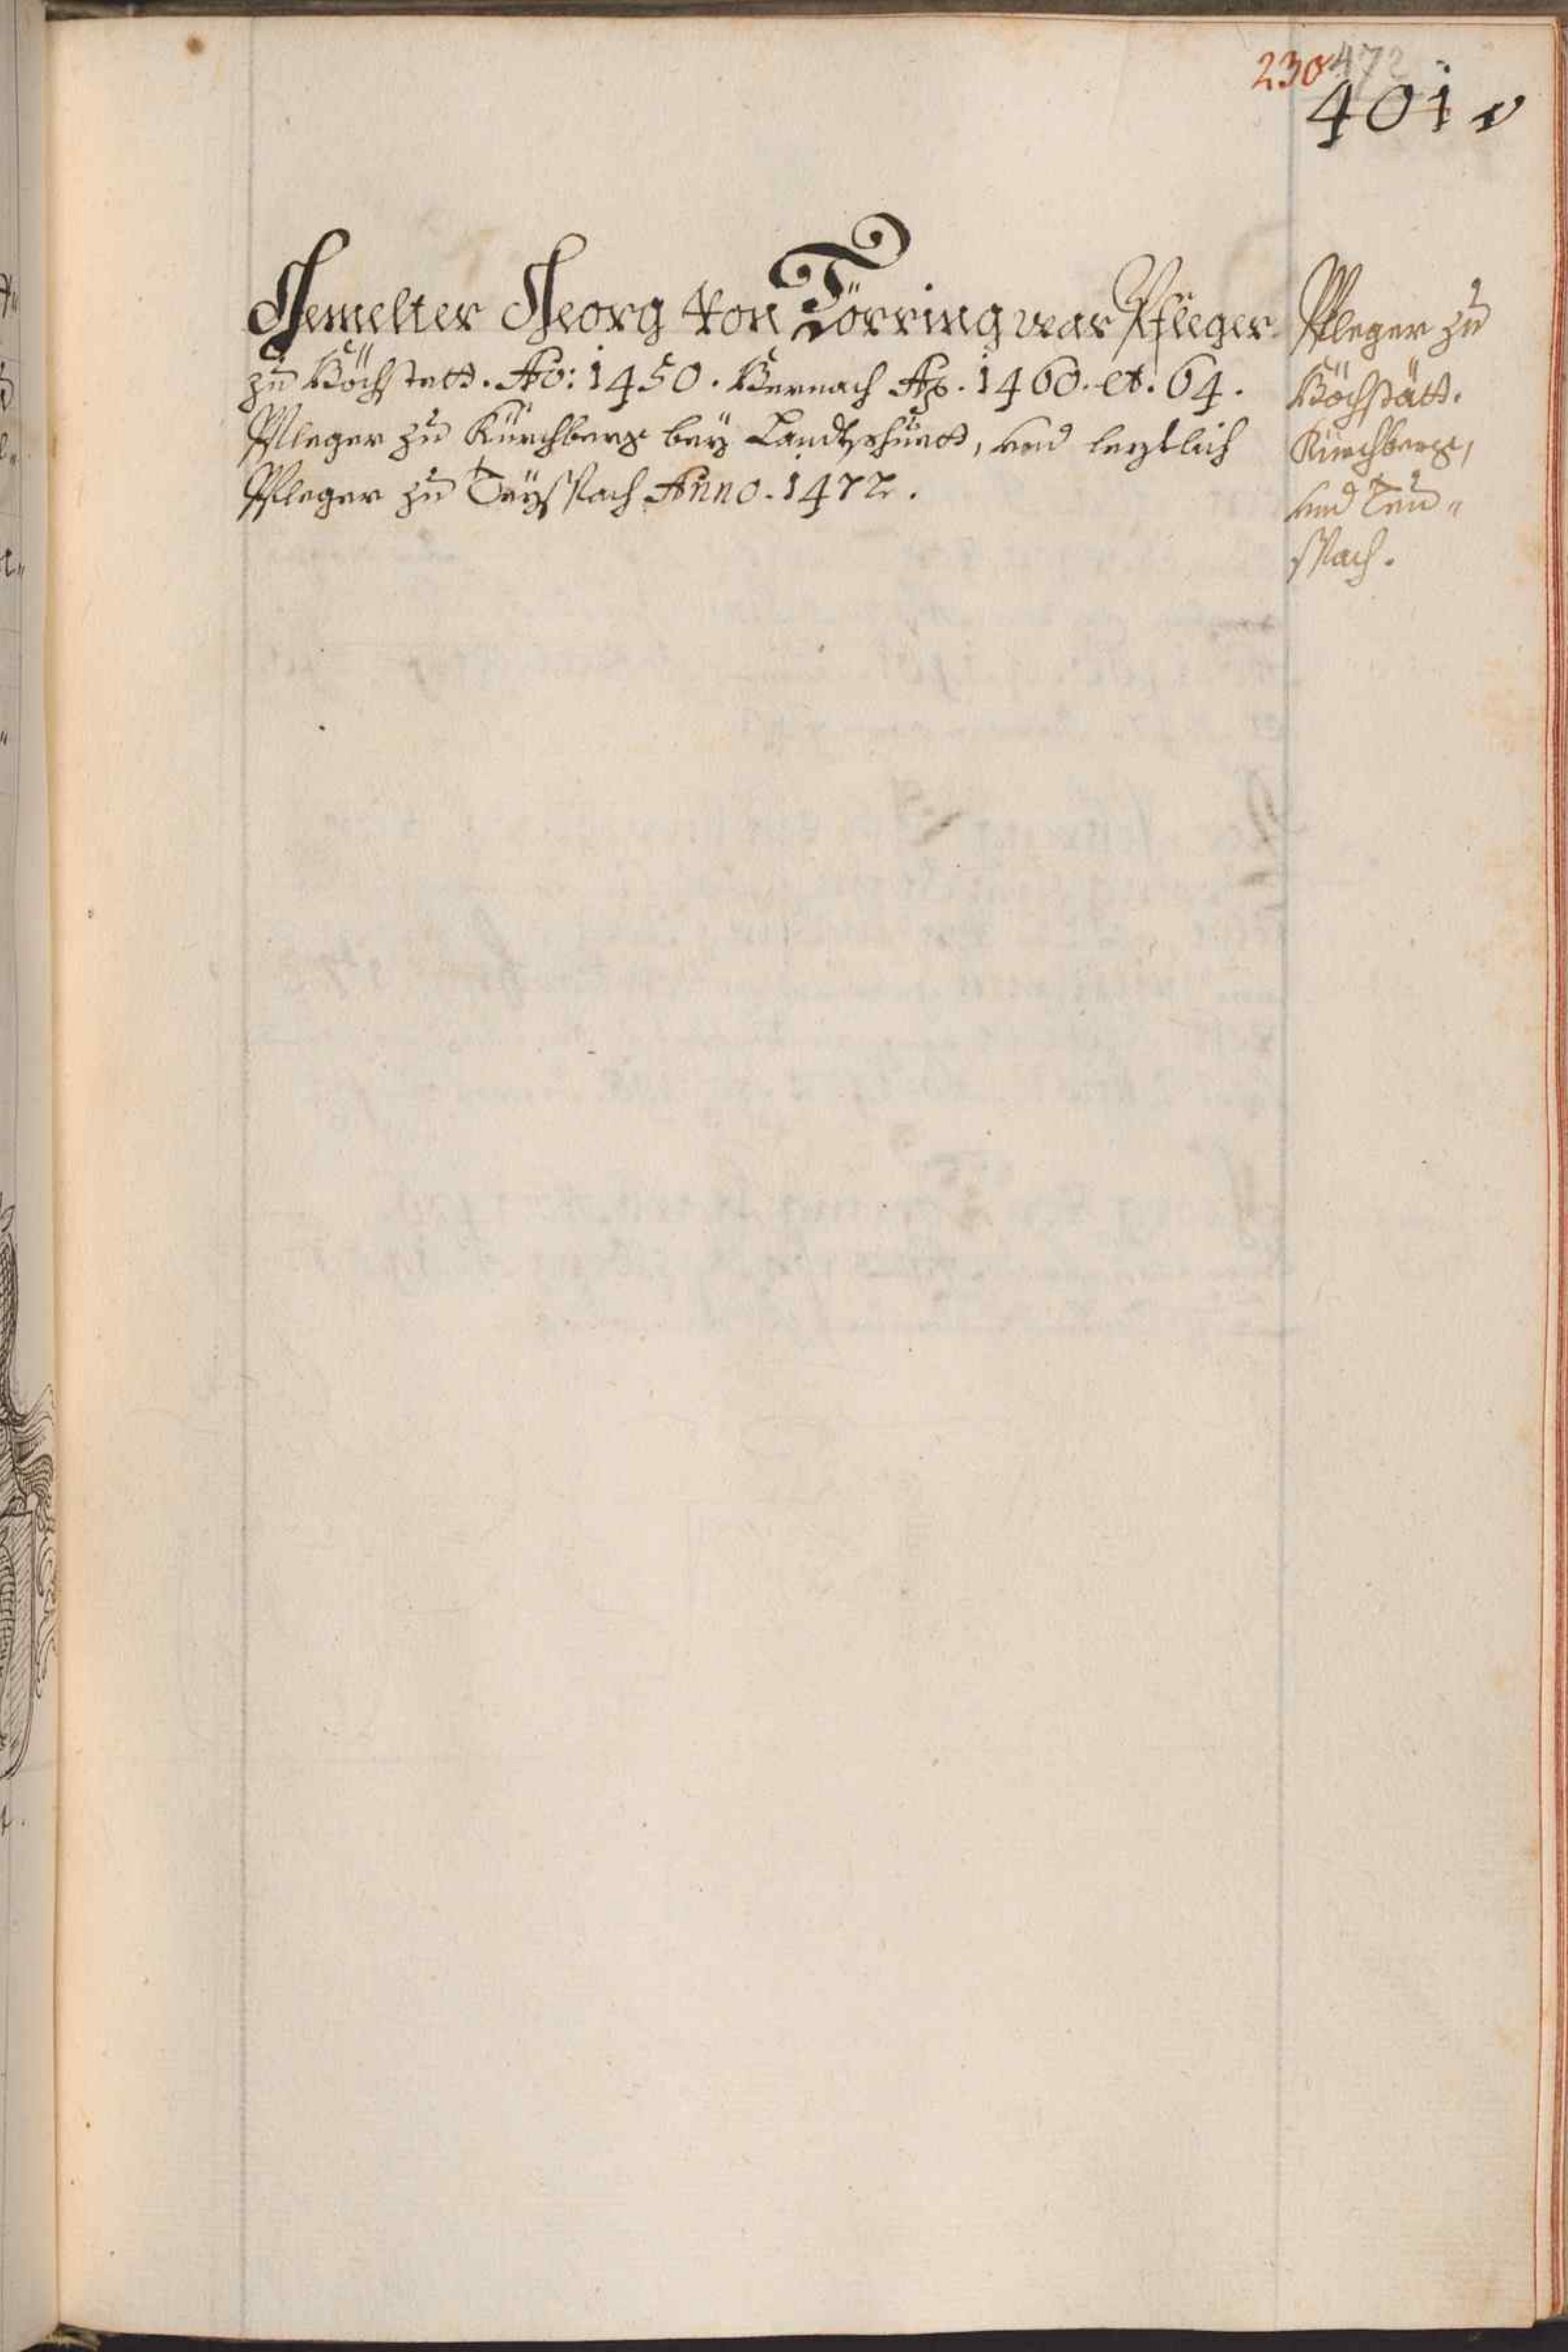 230 472
401 v
Gemelter Georg von Törring war Pfleger
zu Höchstett. Ao: 1450. Hernach Ao. 1460. et. 64.
Pfleger zu Kürchberg bey Landtzhuett, und leztlich
Pfleger zu Teyspach Anno. 1472.
Pfleger zu
Höchstätt.
Kürchberg,
und Teu„
spach.